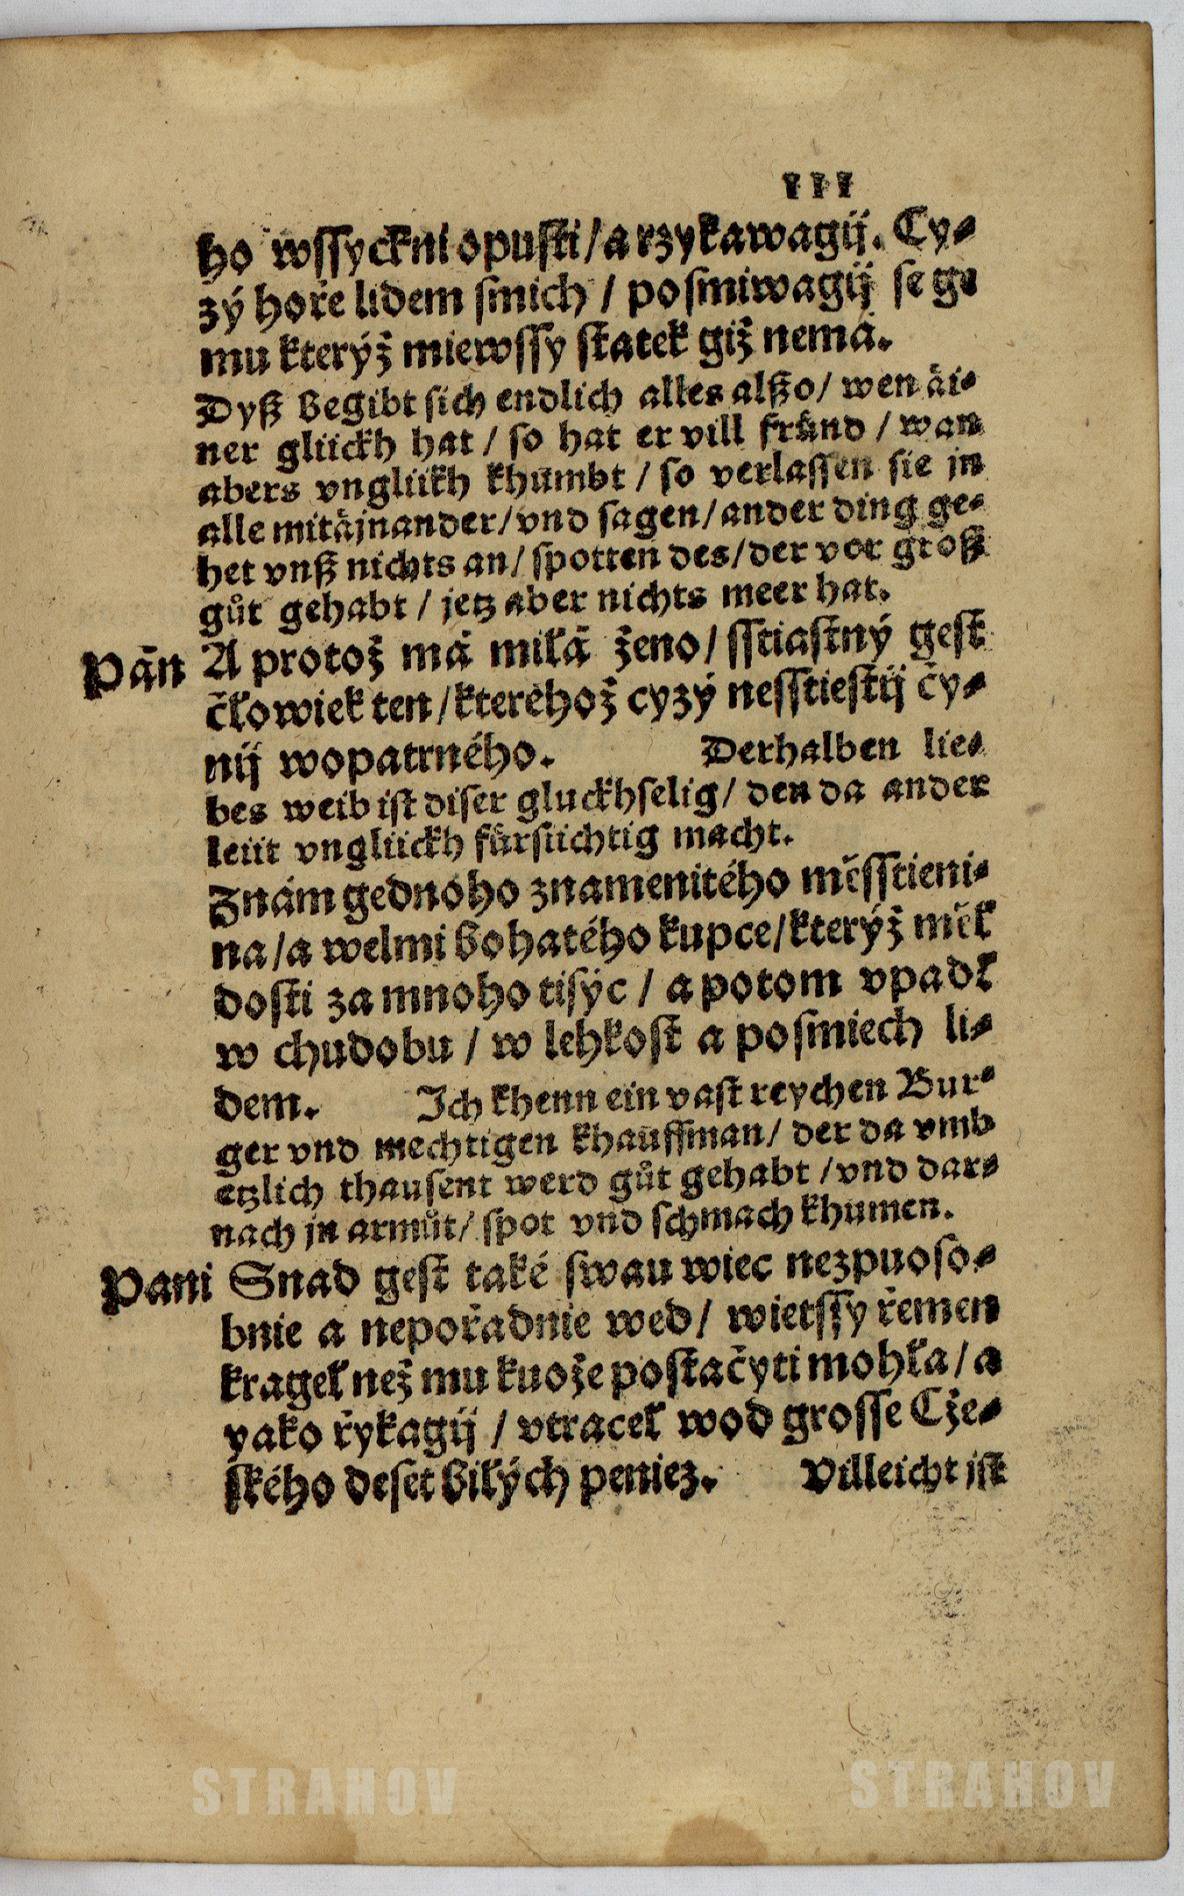 III
ho wssyckni opusti / a rzykawagij. Cy⸗
zý hoře lidem smich / posmiwagij se ge
mu kterýž miewssy statek giž nemá.
Dyß begibt sich endlich alles alßo / wen äi⸗
ner glückh hat / so hat er vill fründ / wan
abers vnglükh khumbt / so verlassen sie jn
alle mitäjnander / vnd sagen / ander ding ge⸗
het vnß nichts an / spotten des / der vor groß
gůt gehabt / jetz aber nichts meer hat.
Pán A protož má milá ženo / sstiastný gest
človwiek ten / kteréhož cyzý nesstiestij čy⸗
nij wopatrného. Derhalben lie⸗
bes weib ist diser gluckhselig / den da ander
leüt vnglückh fürsüchtig macht.
Znám gednoho znamenitéhoměsstieni⸗
na / a welmi bohatého kupce / kterýž měl
dosti za mnoho tisýc / a potom vpadl
w chudobu / w lehkost a posmiech li⸗
dem. Ich khenn ein vast reychen Bur⸗
ger vnd mechtigen khauffman / der da vmb
etzlich thausent werd gůt gehabt / vnd dar⸗
nach jn armůt / spot vnd schmach khumen.
Pani Snad gest také swau wiec nezpuoso⸗
bnie a nepořadnie wed / wietssy řemen
kragel než mu kuože postačyti mohla / a
yako řykagij / vtracel wod grosse Cže⸗
ského deset bilých peniez. Villeicht ist
STRAHOV STRAHOV